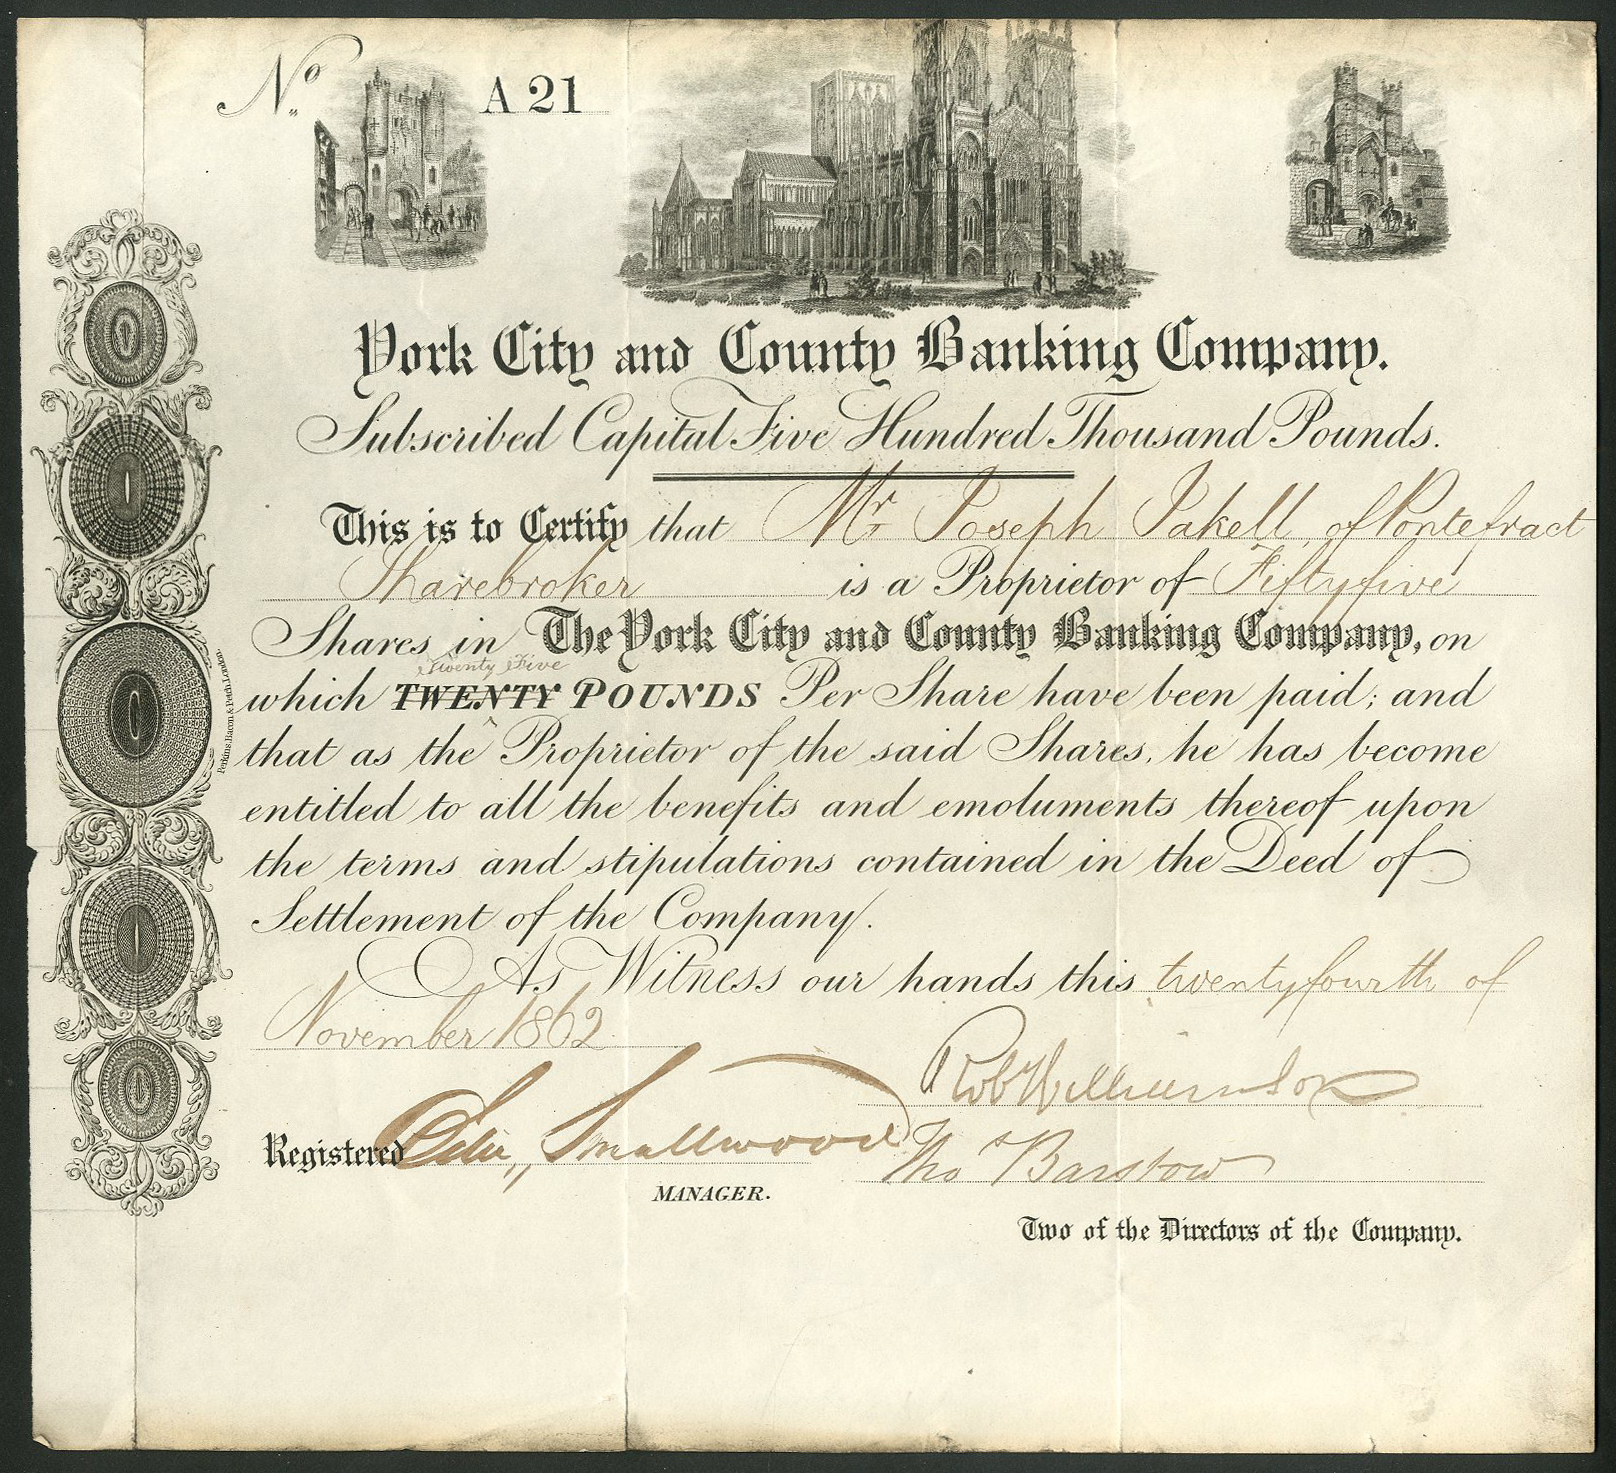 No. A 21
York City and County Banking Company.
Subscribed Capital Five Hundred Thousand Pounds.
This is to Certify that Mr. Joseph Jakell, of Pontefract
Sharebroker is a Proprietor of Fiftyfive
Shares in The York City and County Banking Company, on
Twenty Five
which TWENTY POUNDS Per Share have been paid; and
that as the Proprietor of the said Shares, he has become
entitled to all the benefits and emoluments thereof upon
the terms and stipulations contained in the Deed of
Settlement of the Company.
As Witness our hands this twentyfourth of
November 1862
Rob Williamson
Registered Smallwood
Thos Barstow
MANAGER.
Two of the Directors of the Company.
Perkins, Bacon & Petch, London.